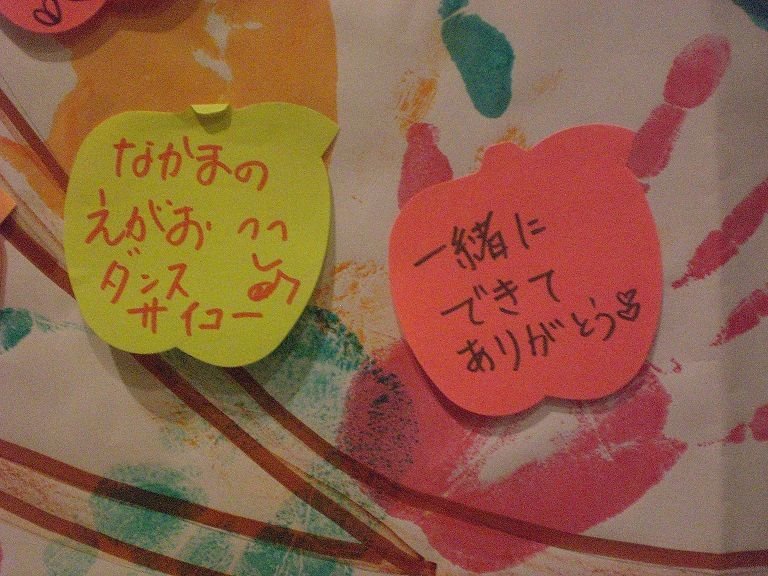 なかまの
えがお
ダンス
サイコー
一緒に
できて
ありがとう